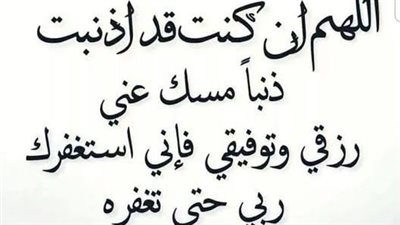 اللهم إن كنت قد أذنبت
ذنباً مسك عني
رزقي وتوفيقي فإني استغفرك
ربي حتى تغفره